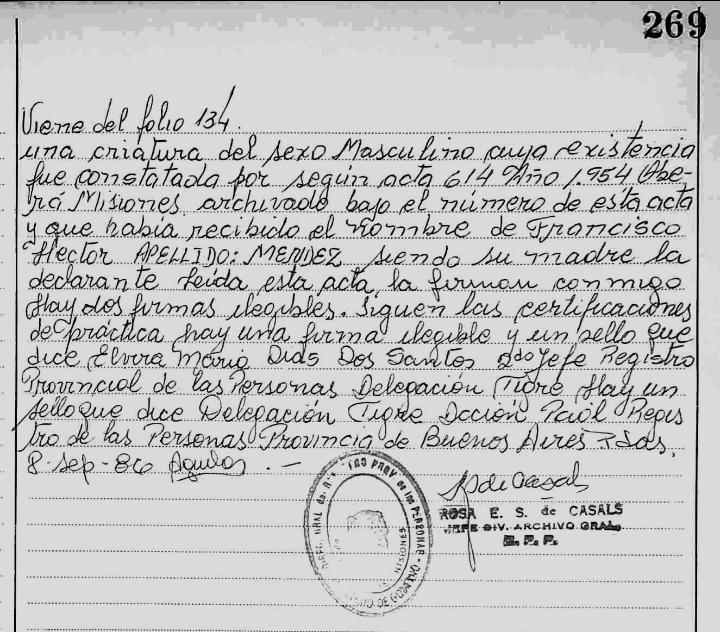 269
Viene del folio 134.
una criatura del sexo Masculino cuya existencia
fue constatada por según acta 614 Año 1.954 Obe-
rá Misiones archivado bajo el número de esta acta
y que había recibido el nombre de Francisco
Hector APELLIDO: MENDEZ siendo su madre la
declarante leída esta acta, la firman conmigo
Hay dos firmas ilegibles. Siguen las certificaciones
de práctica hay una firma ilegible y un sello que
dice Elvira María Dias Dos Santos 2do Jefe Registro
Provincial de las Personas Delegación Tigre Hay un
sello que dice Delegación Tigre Dcción Pcial Regis
tro de las Personas Provincia de Buenos Aires
8-Sep-86 . —
de Casals
ROSA E. S. de CASALS
JEFE DIV. ARCHIVO GRAL.
PROV. de las PERSONAS
MISIONES